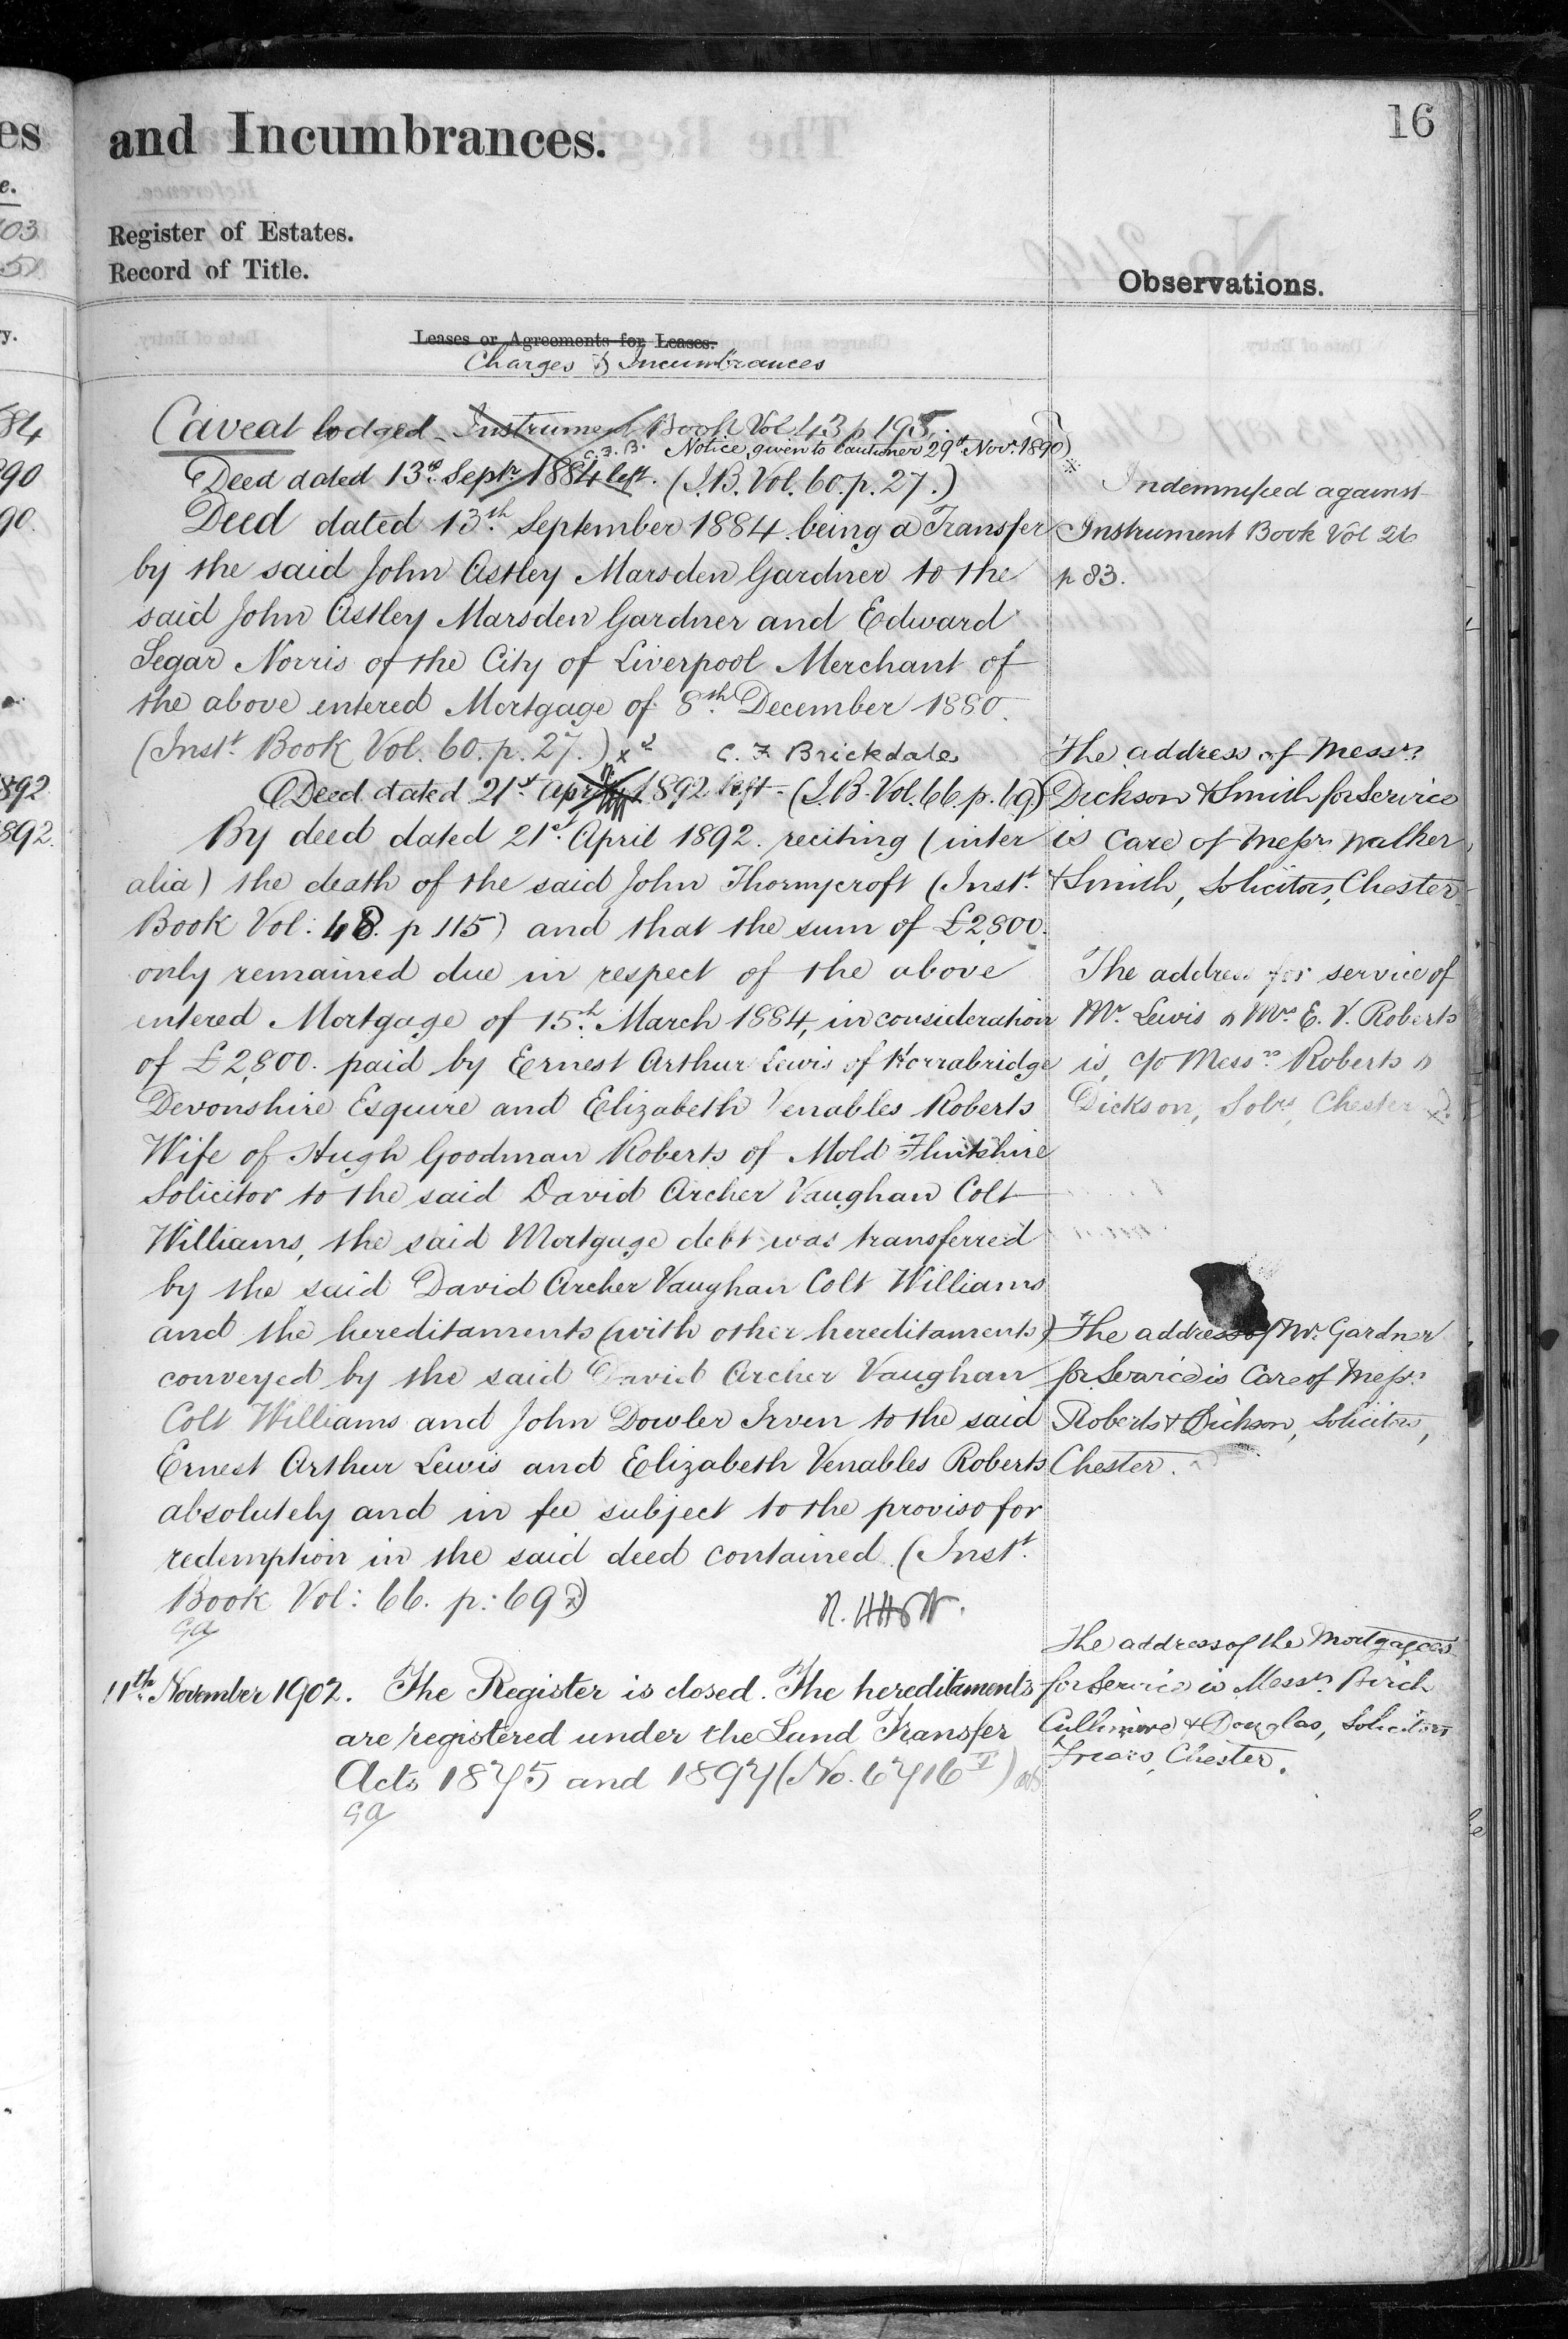 and Incumbrances.
16
Register of Estates.
Record of Title.
Observations.
Leases or Agreements for Leases.
Charges & Incumbrances
Caveat lodged - Instrument Book Vol 43 p 195.
C.F.B. Notice given to Cautioner 29th Novr. 1890
Deed dated 13th Septr. 1884 left. (I.B. Vol. 60. p. 27.)
Deed dated 13th September 1884. being a Transfer
by the said John Astley Marsden Gardner to the
said John Astley Marsden Gardner and Edward
Segar Norris of the City of Liverpool Merchant of
the above entered Mortgage of 8th December 1880.
(Inst. Book Vol. 60. p. 27.) C. F. Brickdale
Deed dated 21st April 1892 left - (I.B. Vol. 66 p. 69)
By deed dated 21st April 1892. reciting (inter
alia) the death of the said John Thornycroft (Inst.
Book Vol: 48. p 115) and that the sum of £2,800.
only remained due in respect of the above
entered Mortgage of 15th March 1884, in consideration
of £2,800. paid by Ernest Arthur Lewis of Horrabridge
Devonshire Esquire and Elizabeth Venables Roberts
Wife of Hugh Goodman Roberts of Mold Flintshire
Solicitor to the said David Archer Vaughan Colt
Williams, the said Mortgage debt was transferred
by the said David Archer Vaughan Colt Williams
and the hereditaments (with other hereditaments)
conveyed by the said David Archer Vaughan
Colt Williams and John Dowler Irven to the said
Ernest Arthur Lewis and Elizabeth Venables Roberts
absolutely and in fee subject to the proviso for
redemption in the said deed contained. (Inst.
Book Vol: 66. p: 69)
11th November 1902. The Register is closed. The hereditaments
are registered under the Land Transfer
Acts 1875 and 1897 (No. 6716)
Indemnified against
Instrument Book Vol 26
p 83.
The address of Messrs.
Dickson & Smith for Service
is Care of Messrs. Walker
& Smith, Solicitors, Chester.
The address for service of
Mr. Lewis & Mrs. E. V. Roberts
is, c/o Messrs. Roberts &
Dickson, Solrs, Chester
The address of Mr. Gardner
for Service is Care of Messrs.
Roberts & Dickson, Solicitors,
Chester.
The address of the Mortgagees
for Service is Messrs. Birch
Cullimore & Douglas, Solicitors
Friars, Chester.